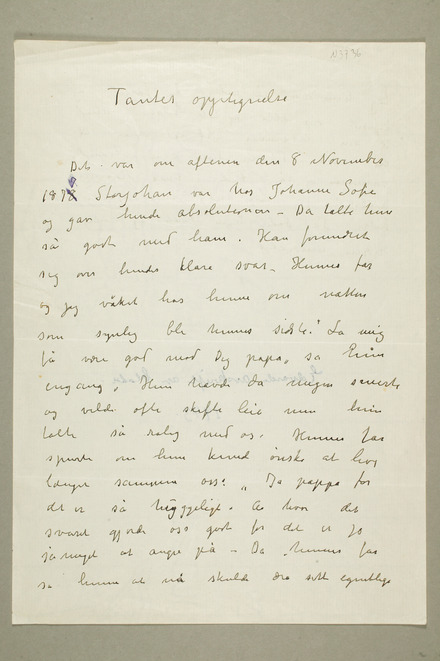 N 37 36
Tantes opptegnelse
Det var om aftenen den 8 November
1878 Storjohan var hos Johanne Sofie
og gav hende absolutionen – Da talte hun
så godt med ham. Han forundret
sig over hendes klare svar – Hennes far
og jeg våket hos henne om natten
som synlig ble hennes sidste! La mig
få være god med Dig papa, sa
engang, Hun havde da megen smerte
og vilde ofte skifte leie men hun
talte så rolig med os. Hennes far
spurte om hun kunde ønske at leve
længer sammen oss: „Ja pappa for
det er så hyggeligt. Å hvor det
svaret gjorde oss godt for det er jo
så meget at angre på – Da hennes far
sa henne at nå skulde